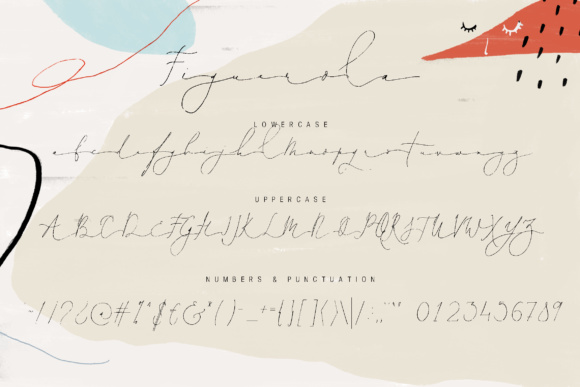 Figuerola
LOWERCASE
a b c d e f g h i j k l m n o p q r s t u v w x y z
UPPERCASE
A B C D E F G H I J K L M N O P Q R S T U V W X Y Z
NUMBERS & PUNCTUATION
0123456789